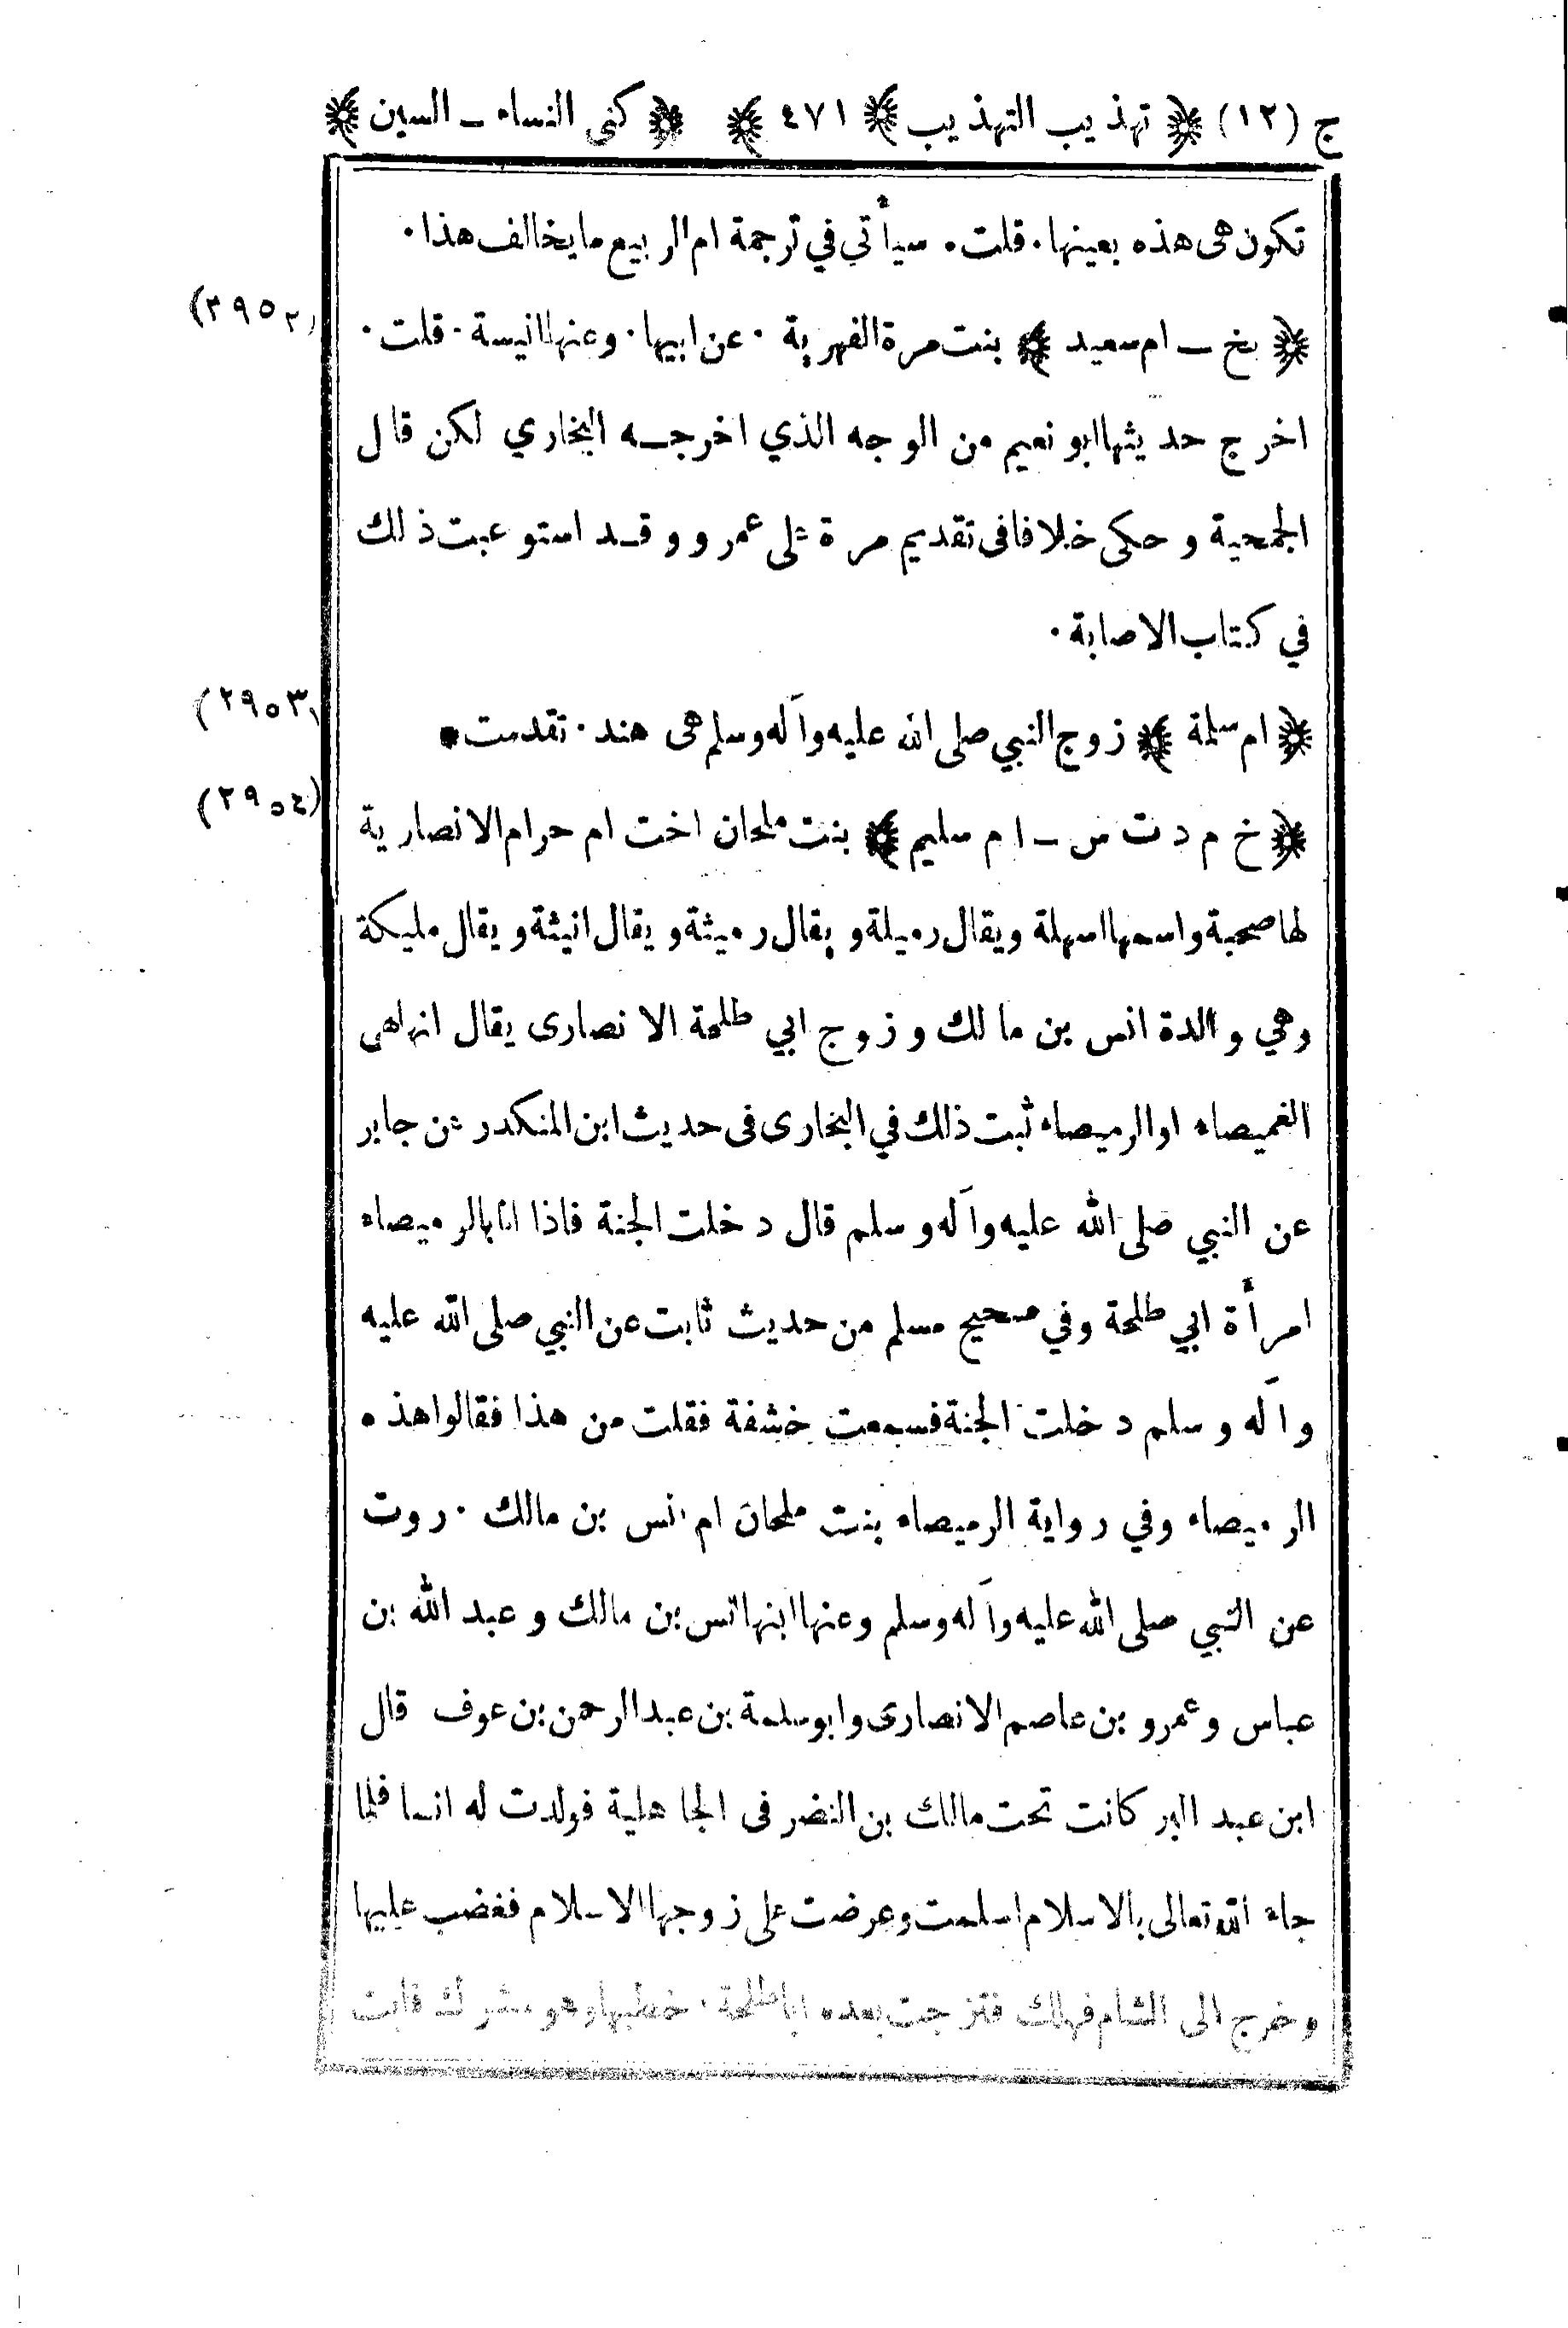 ج (١٢) ﴿ تهذيب التهذيب ﴾ ٤٧١ ﴾ ﴿ كنى النساء ـ السين ﴾
تكون هى هذه بعينها٠ قلت٠ سيأتي في ترجمة ام الربيع ما يخالف هذا٠
(٢٩٥٢)
﴿ بخ ـ ام سعيد ﴾ بنت مرة الفهرية ٠ عن ابيها٠ وعنها انيسة ٠ قلت ٠
اخرج حديثها ابو نعيم من الوجه الذي اخرجه البخاري لكن قال
الجمحية وحكى خلافا فى تقديم مرة على عمرو وقد استوعبت ذلك
في كتاب الاصابة ٠
(٢٩٥٣)
﴿ ام سلمة ﴾ زوج النبي صلى الله عليه وآله وسلم هى هند ٠ تقدمت ٠
(٢٩٥٤)
﴿ خ م د ت س ـ ام سليم ﴾ بنت ملحان اخت ام حرام الانصارية
لها صحبة واسمها سهلة ويقال رميلة ويقال رميثة ويقال انيثة ويقال مليكة
وهي والدة انس بن مالك وزوج ابي طلحة الانصارى يقال انها هى
الغميصاء او الرميصاء ثبت ذلك في البخارى فى حديث ابن المنكدر عن جابر
عن النبي صلى الله عليه وآله وسلم قال دخلت الجنة فاذا انا بالرميصاء
امرأة ابي طلحة وفي صحيح مسلم من حديث ثابت عن النبي صلى الله عليه
وآله وسلم دخلت الجنة فسمعت خشفة فقلت من هذا فقالوا هذه
الرميصاء وفي رواية الرميصاء بنت ملحان ام انس بن مالك ٠ روت
عن النبي صلى الله عليه وآله وسلم وعنها ابنها انس بن مالك وعبد الله بن
عباس وعمرو بن عاصم الانصارى وابو سلمة بن عبد الرحمن بن عوف قال
ابن عبد البر كانت تحت مالك بن النضر فى الجاهلية فولدت له انسا فلما
جاء الله تعالى بالاسلام اسلمت وعرضت على زوجها الاسلام فغضب عليها
وخرج الى الشام فهلك فتزوجت بعده ابا طلحة ٠ خطبها وهو مشرك فابت